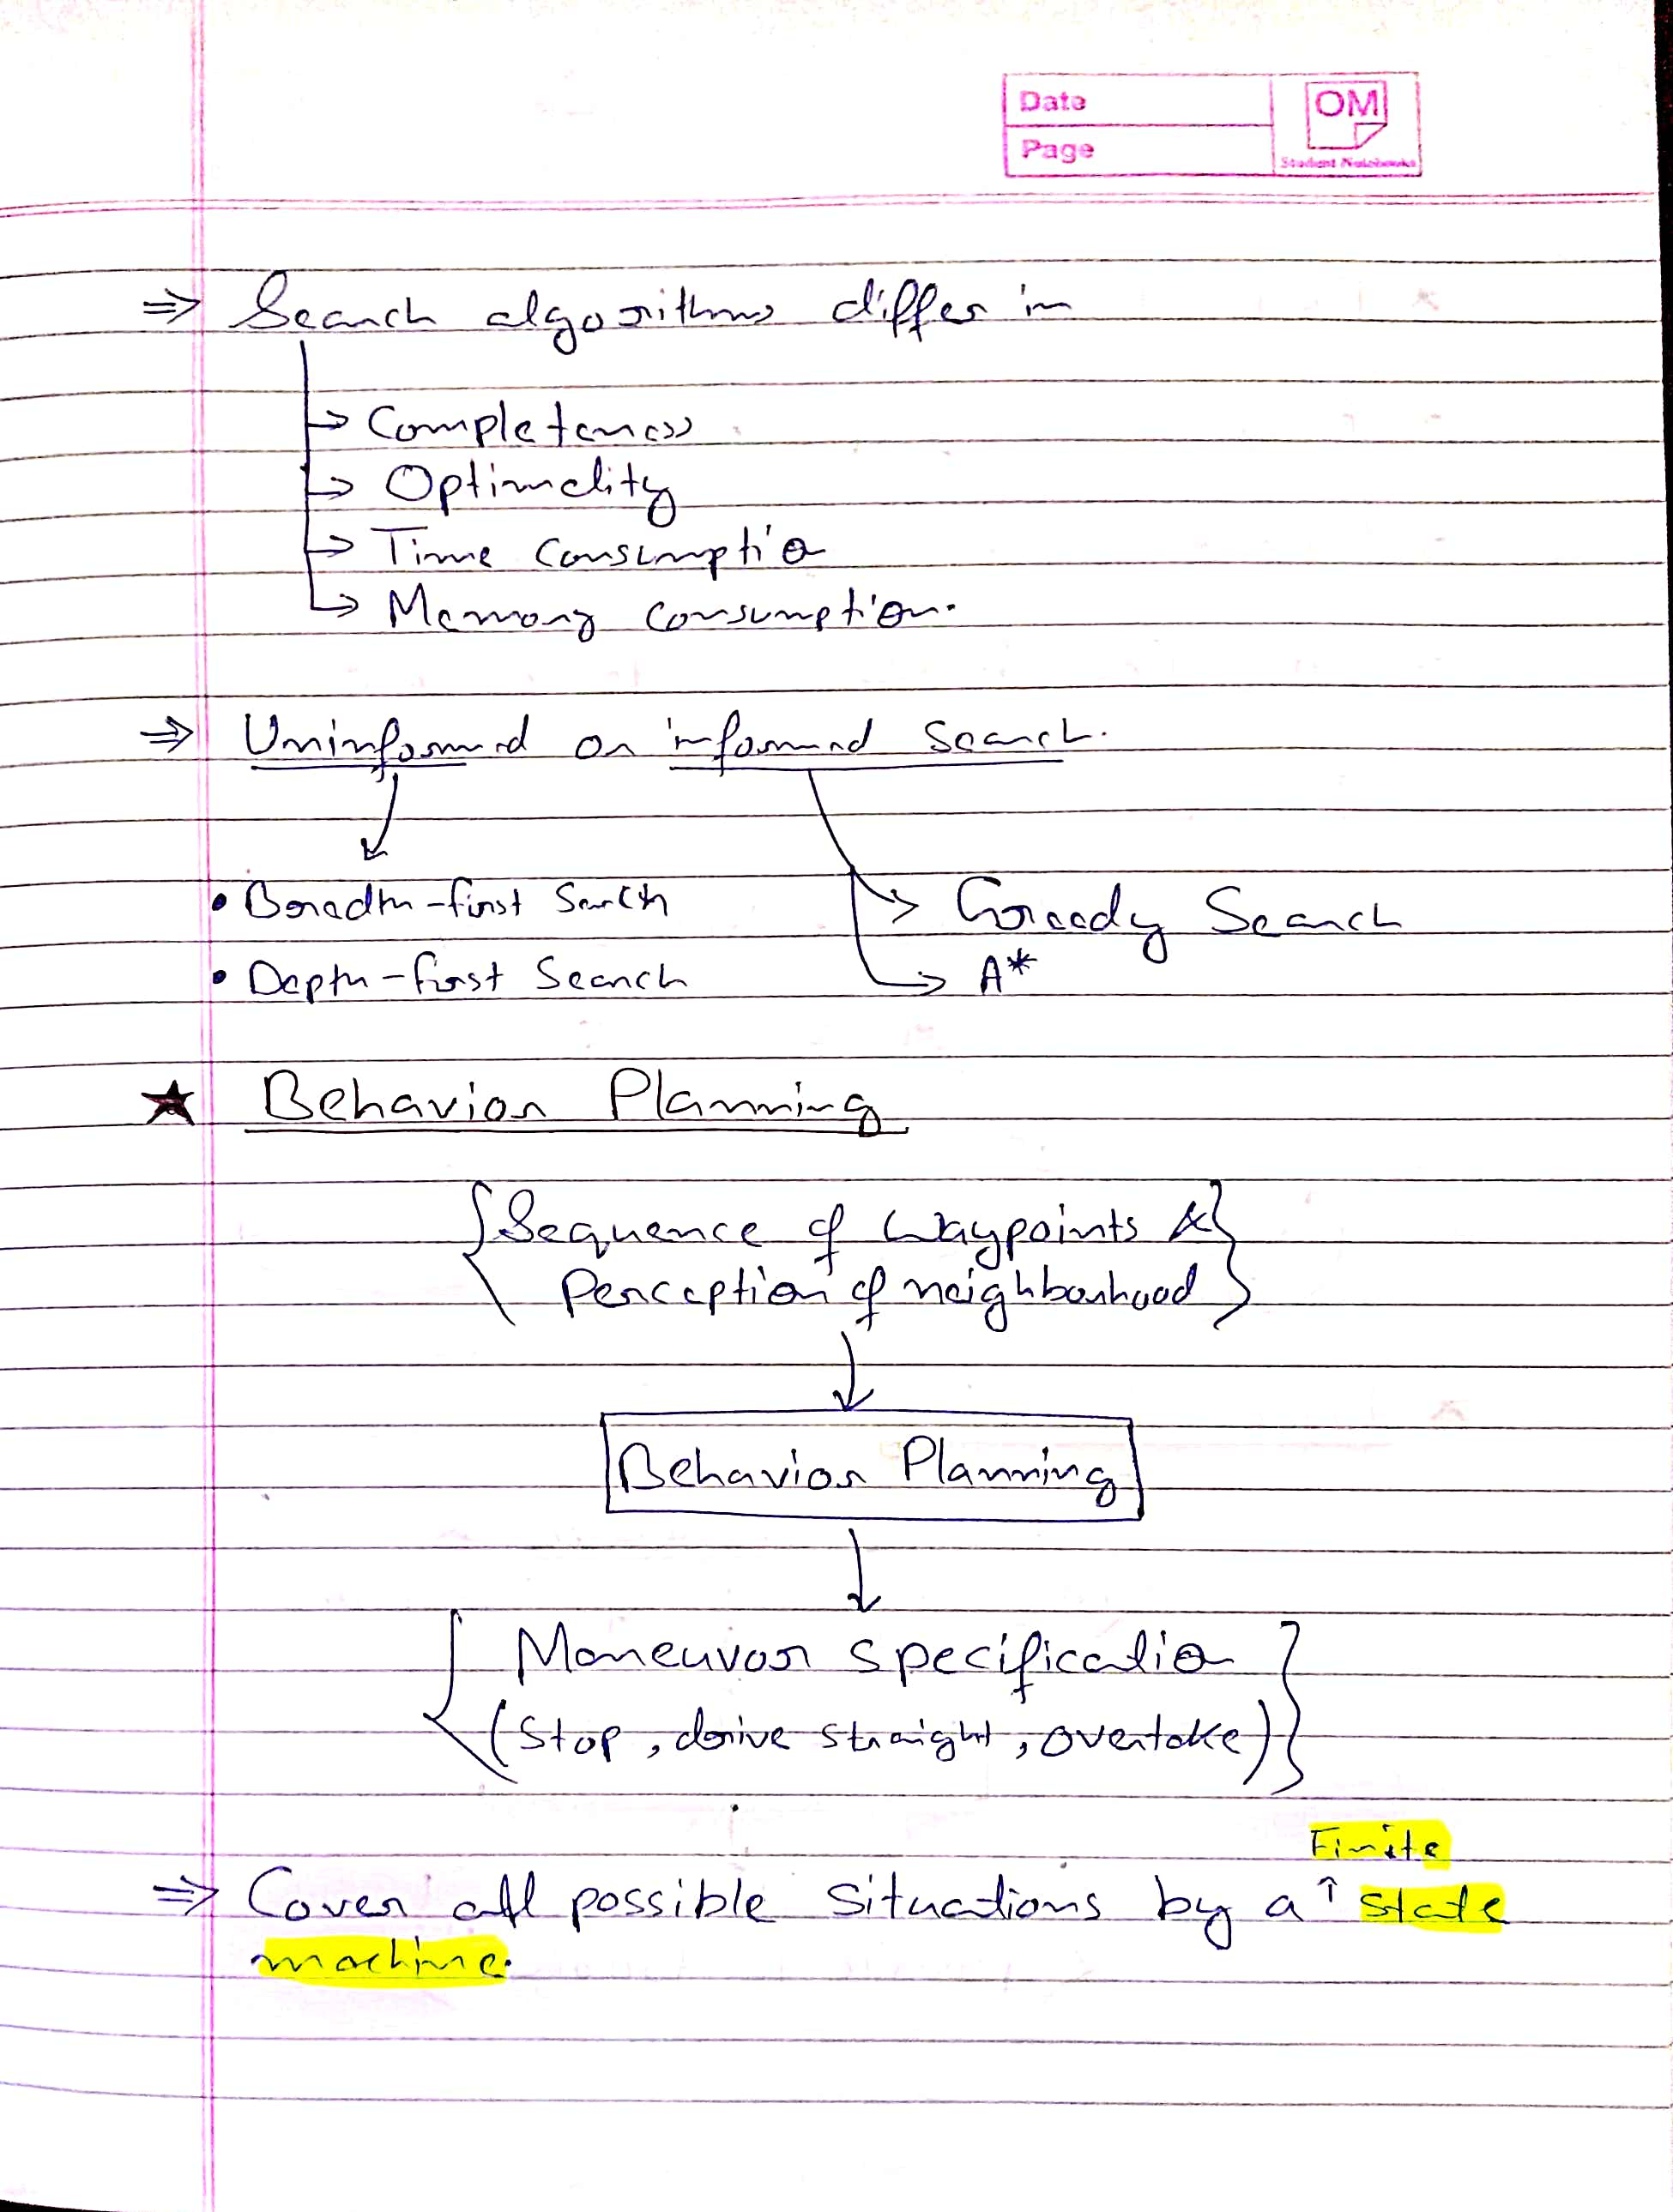 Date
Page
OM
Student Notebooks
⇒ Search algorithms differ in
→ Completeness
→ Optimality
→ Time consumption
→ Memory consumption.
⇒ Uninformed or informed search.
• Breadth-first Search
→ Greedy Search
• Depth-first Search
→ A*
★ Behavior Planning
{Sequence of waypoints &
perception of neighbourhood}
Behavior Planning
{Maneuver specification
(stop, drive straight, overtake)}
Finite
⇒ Cover all possible situations by a ↑ state
machine.